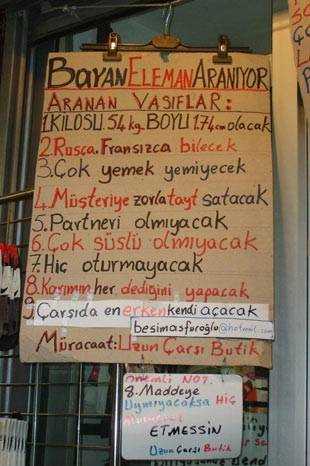 BAYAN ELEMAN ARANIYOR
ARANAN VASIFLAR:
1.KİLOSU 54 kg. BOYU 1.74 cm olacak
2.Rusça.Fransızca bilecek
3.Çok yemek yemiyecek
4.Müşteriye zorla tayt satacak
5.Partneri olmıyacak
6.Çok süslü olmıyacak
7.Hiç oturmayacak
8.karımın her dediğini yapacak
9.Çarşıda en erken kendi açacak
besimasfuroğlu@hotmail.com
Müracaat:Uzun Çarşı Butik
önemli NOT.
8.Maddeye
Uymıyacaksa HİÇ
ETMESSİN
Uzun Çarşı Butik